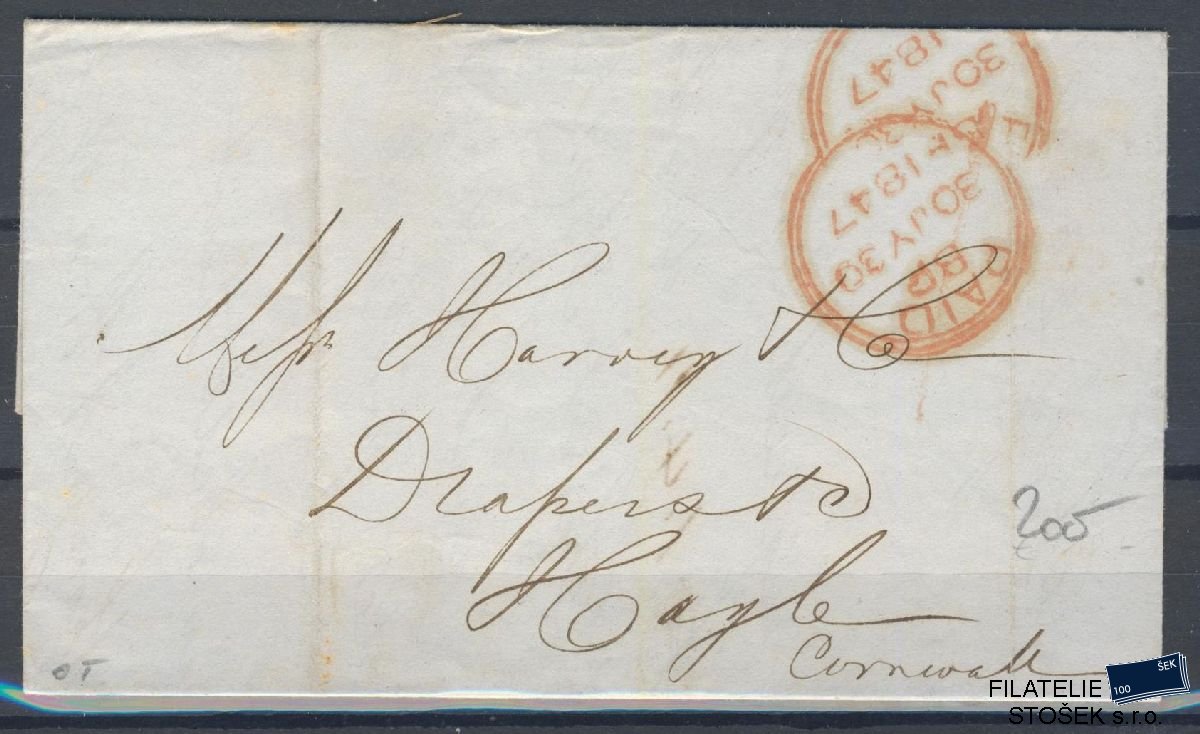 1847
30 JY 30
F
PAID
BP
F 1847
30 JY 30
Messrs Harvey & Co
Drapers &c
Hayle
Cornwall
200
OT
ŠEK
100
FILATELIE
STOŠEK s.r.o.